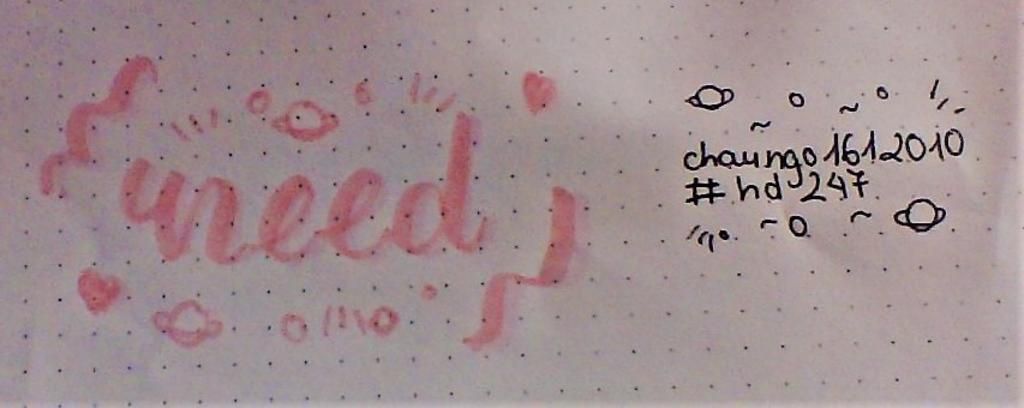 need
chaungo1612010
#hd 247